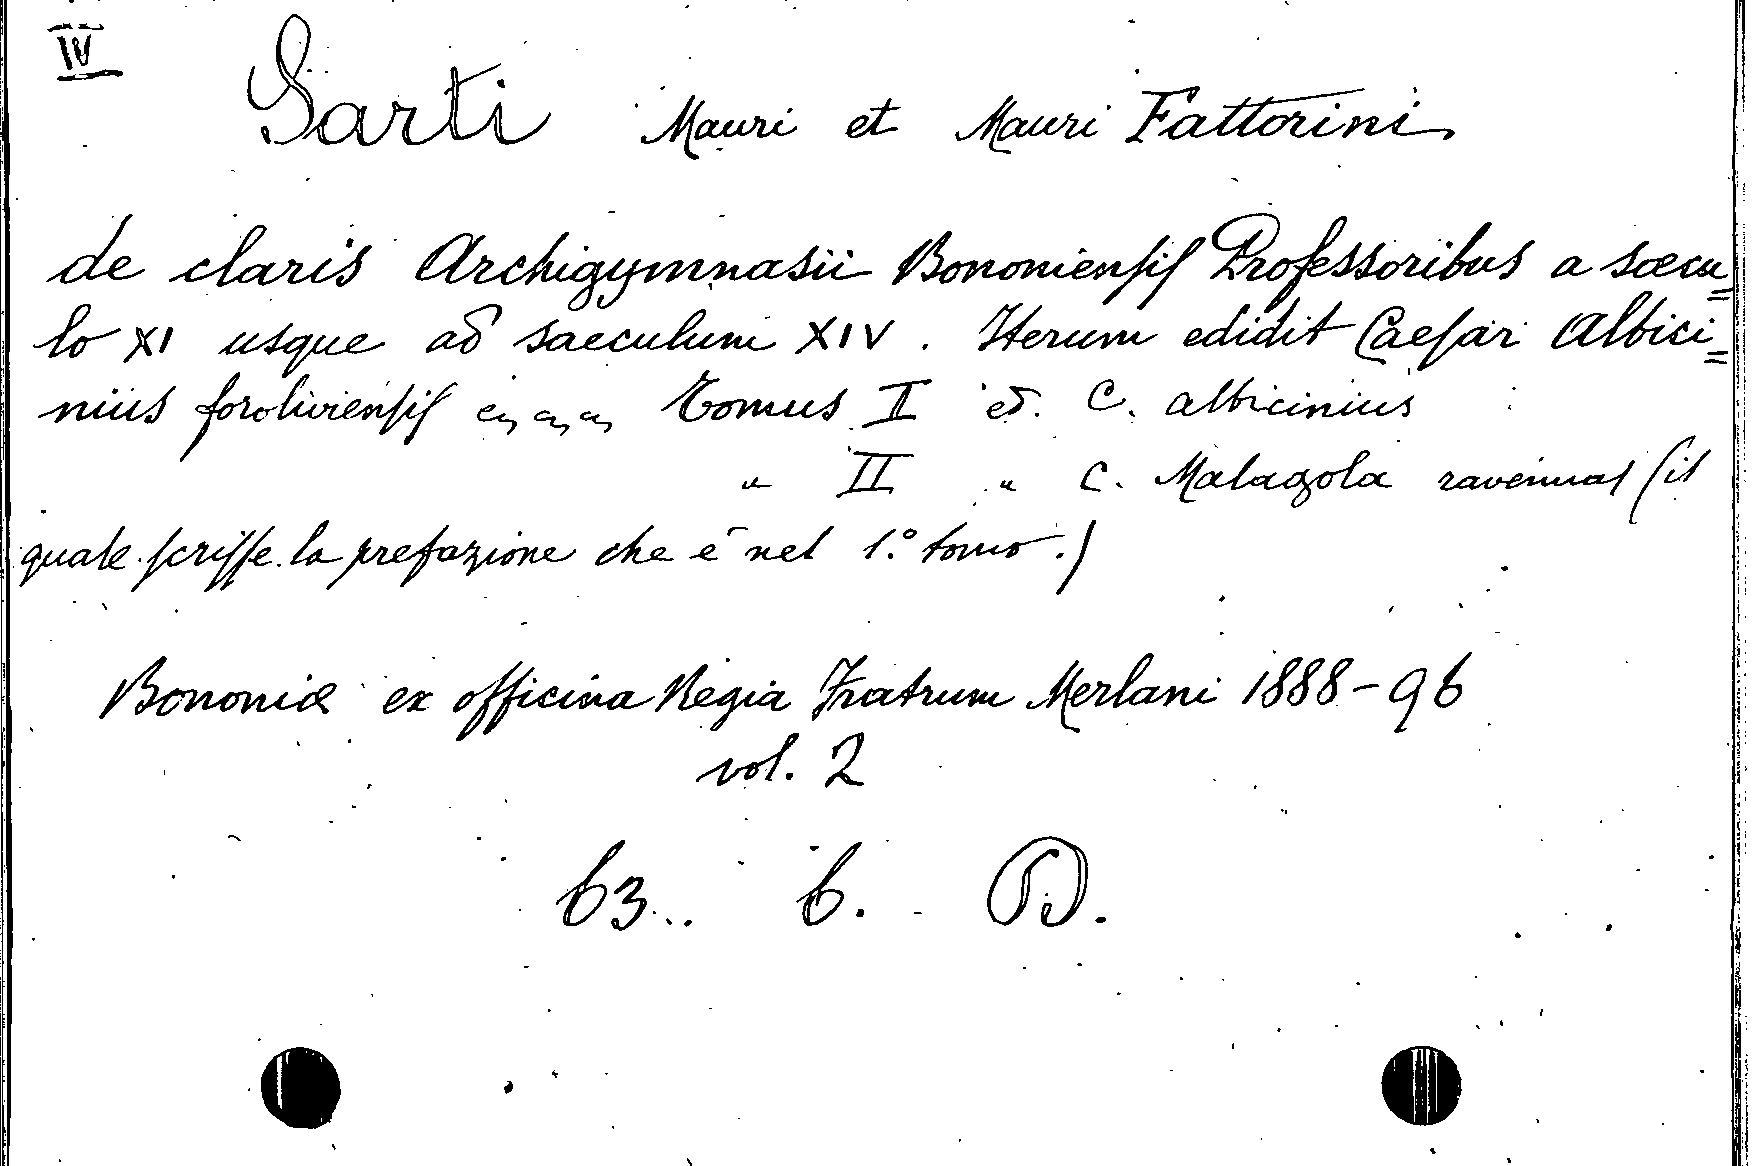 IV
Sarti Mauri et Mauri Fattorini
de claris Archigymnasii Bononiensis Professoribus a sæcu=
lo XI usque ad saeculum XIV. Iterum edidit Caesar Albici=
nius foroliviensis Tomus I ed. C. albicinius
" II " C. Malagola ravennas (il
quale scrisse la prefazione che è nel 1.º tomo.)
Bononiæ ex officina Regia Fratrum Merlani 1888-96
vol. 2
63. 6. D.